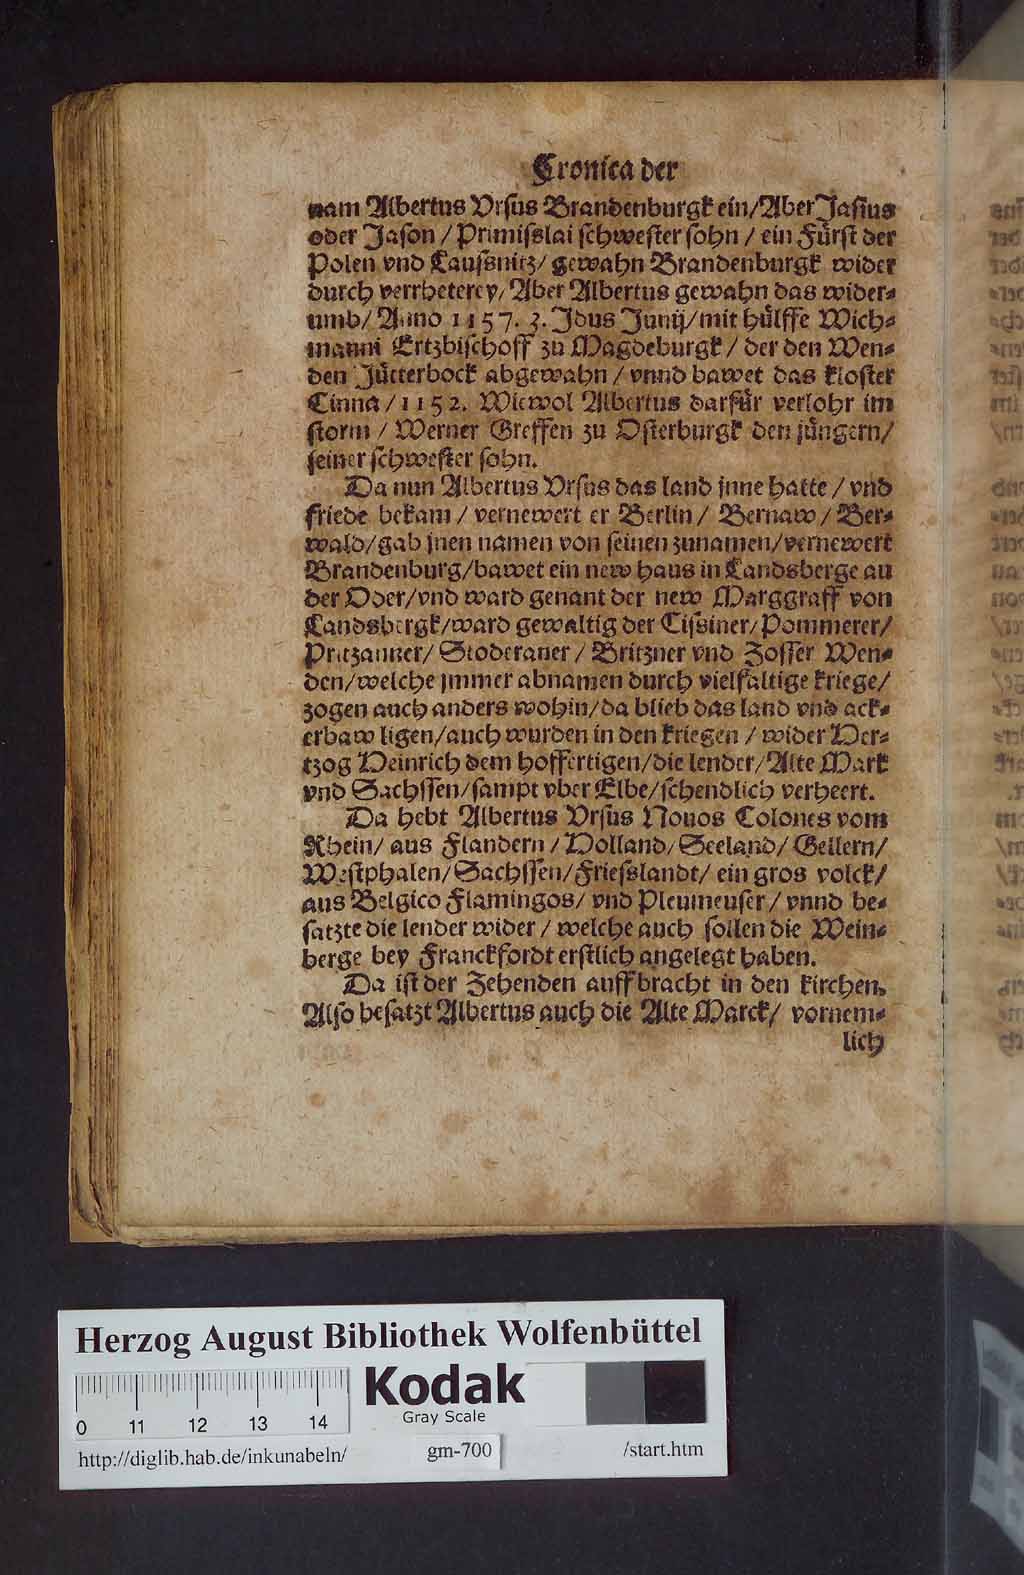 Cronica der
nam Albertus Vrsus Brandenburgk ein/Aber Jasius
oder Jason / Primisslai schwester sohn / ein Fürst der
Polen vnd Laussnitz/ gewahn Brandenburgk wider
durch verrheterey/ Aber Albertus gewahn das wider-
umb/ Anno 1157. 3. Jdus Junij/mit hülffe Wich-
manni Ertzbischoff zu Magdeburgk / der den Wen-
den Jütterbock abgewahn / vnnd bawet das kloster
Cinna / 1152. Wiewol Albertus darfür verlohr im
storm / Werner Greffen zu Osterburgk den jüngern/
seiner schwester sohn.
Da nun Albertus Vrsus das land jnne hatte / vnd
friede bekam / vernewert er Berlin / Bernaw / Ber-
wald/gab jnen namen von seinen zunamen/vernewert
Brandenburg/bawet ein new haus in Landsberge an
der Oder/vnd ward genant der new Marggraff von
Landsbergk/ward gewaltig der Cissiner/Pommerer/
Pritzanner/ Stoderaner / Britzner vnd Zosser Wen-
den/welche jmmer abnamen durch vielfaltige kriege/
zogen auch anders wohin/da blieb das land vnd ack-
erbaw ligen/auch wurden in den kriegen / wider Her-
tzog Heinrich dem hoffertigen/die lender/Alte Mark
vnd Sachssen/sampt vber Elbe/schendlich verheert.
Da hebt Albertus Vrsus Nouos Colones vom
Rhein/ aus Flandern / Holland/ Seeland/ Gellern/
Westphalen/Sachssen/Friesslandt/ ein gros volck/
aus Belgico Flamingos/ vnd Pleumeuser / vnnd be-
satzte die lender wider / welche auch sollen die Wein-
berge bey Franckfordt erstlich angelegt haben.
Da ist der Zehenden auffbracht in den kirchen.
Also besatzt Albertus auch die Alte Marck/ vornem-
lich
Herzog August Bibliothek Wolfenbüttel
0 11 12 13 14
Kodak
Gray Scale
http://diglib.hab.de/inkunabeln/ gm-700 /start.htm